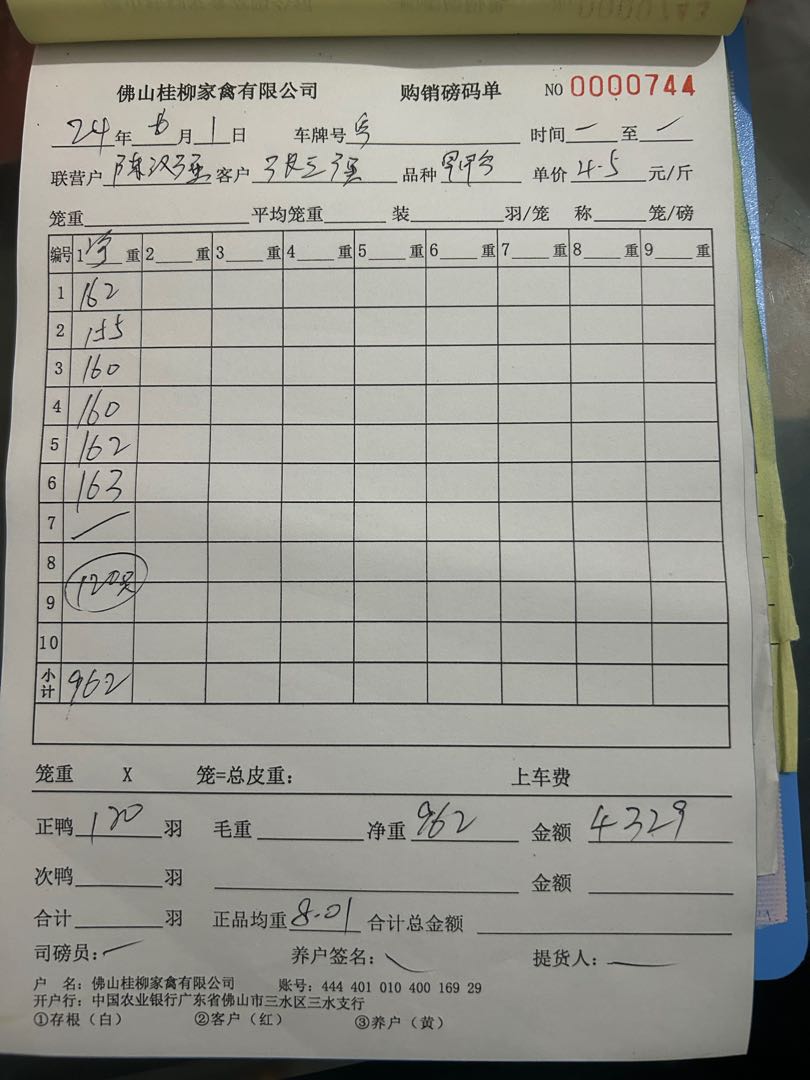 佛山桂柳家禽有限公司 购销磅码单 NO 0000744
24年6月1日 车牌号 时间 — 至 —
联营户 陈汉强 客户 张三强 品种 单价 4.5 元/斤
笼重 平均笼重 装 羽/笼 称 笼/磅
编号 1 重 2 重 3 重 4 重 5 重 6 重 7 重 8 重 9 重
1 162
2 155
3 160
4 160
5 162
6 163
7
8
9 120只
10
小计 962
笼重 X 笼=总皮重: 上车费
正鸭 120 羽 毛重 净重 962 金额 4329
次鸭 羽 金额
合计 羽 正品均重 8.01 合计总金额
司磅员: 养户签名: 提货人:
户 名: 佛山桂柳家禽有限公司 账号: 444 401 010 400 169 29
开户行: 中国农业银行广东省佛山市三水区三水支行
①存根(白) ②客户(红) ③养户(黄)